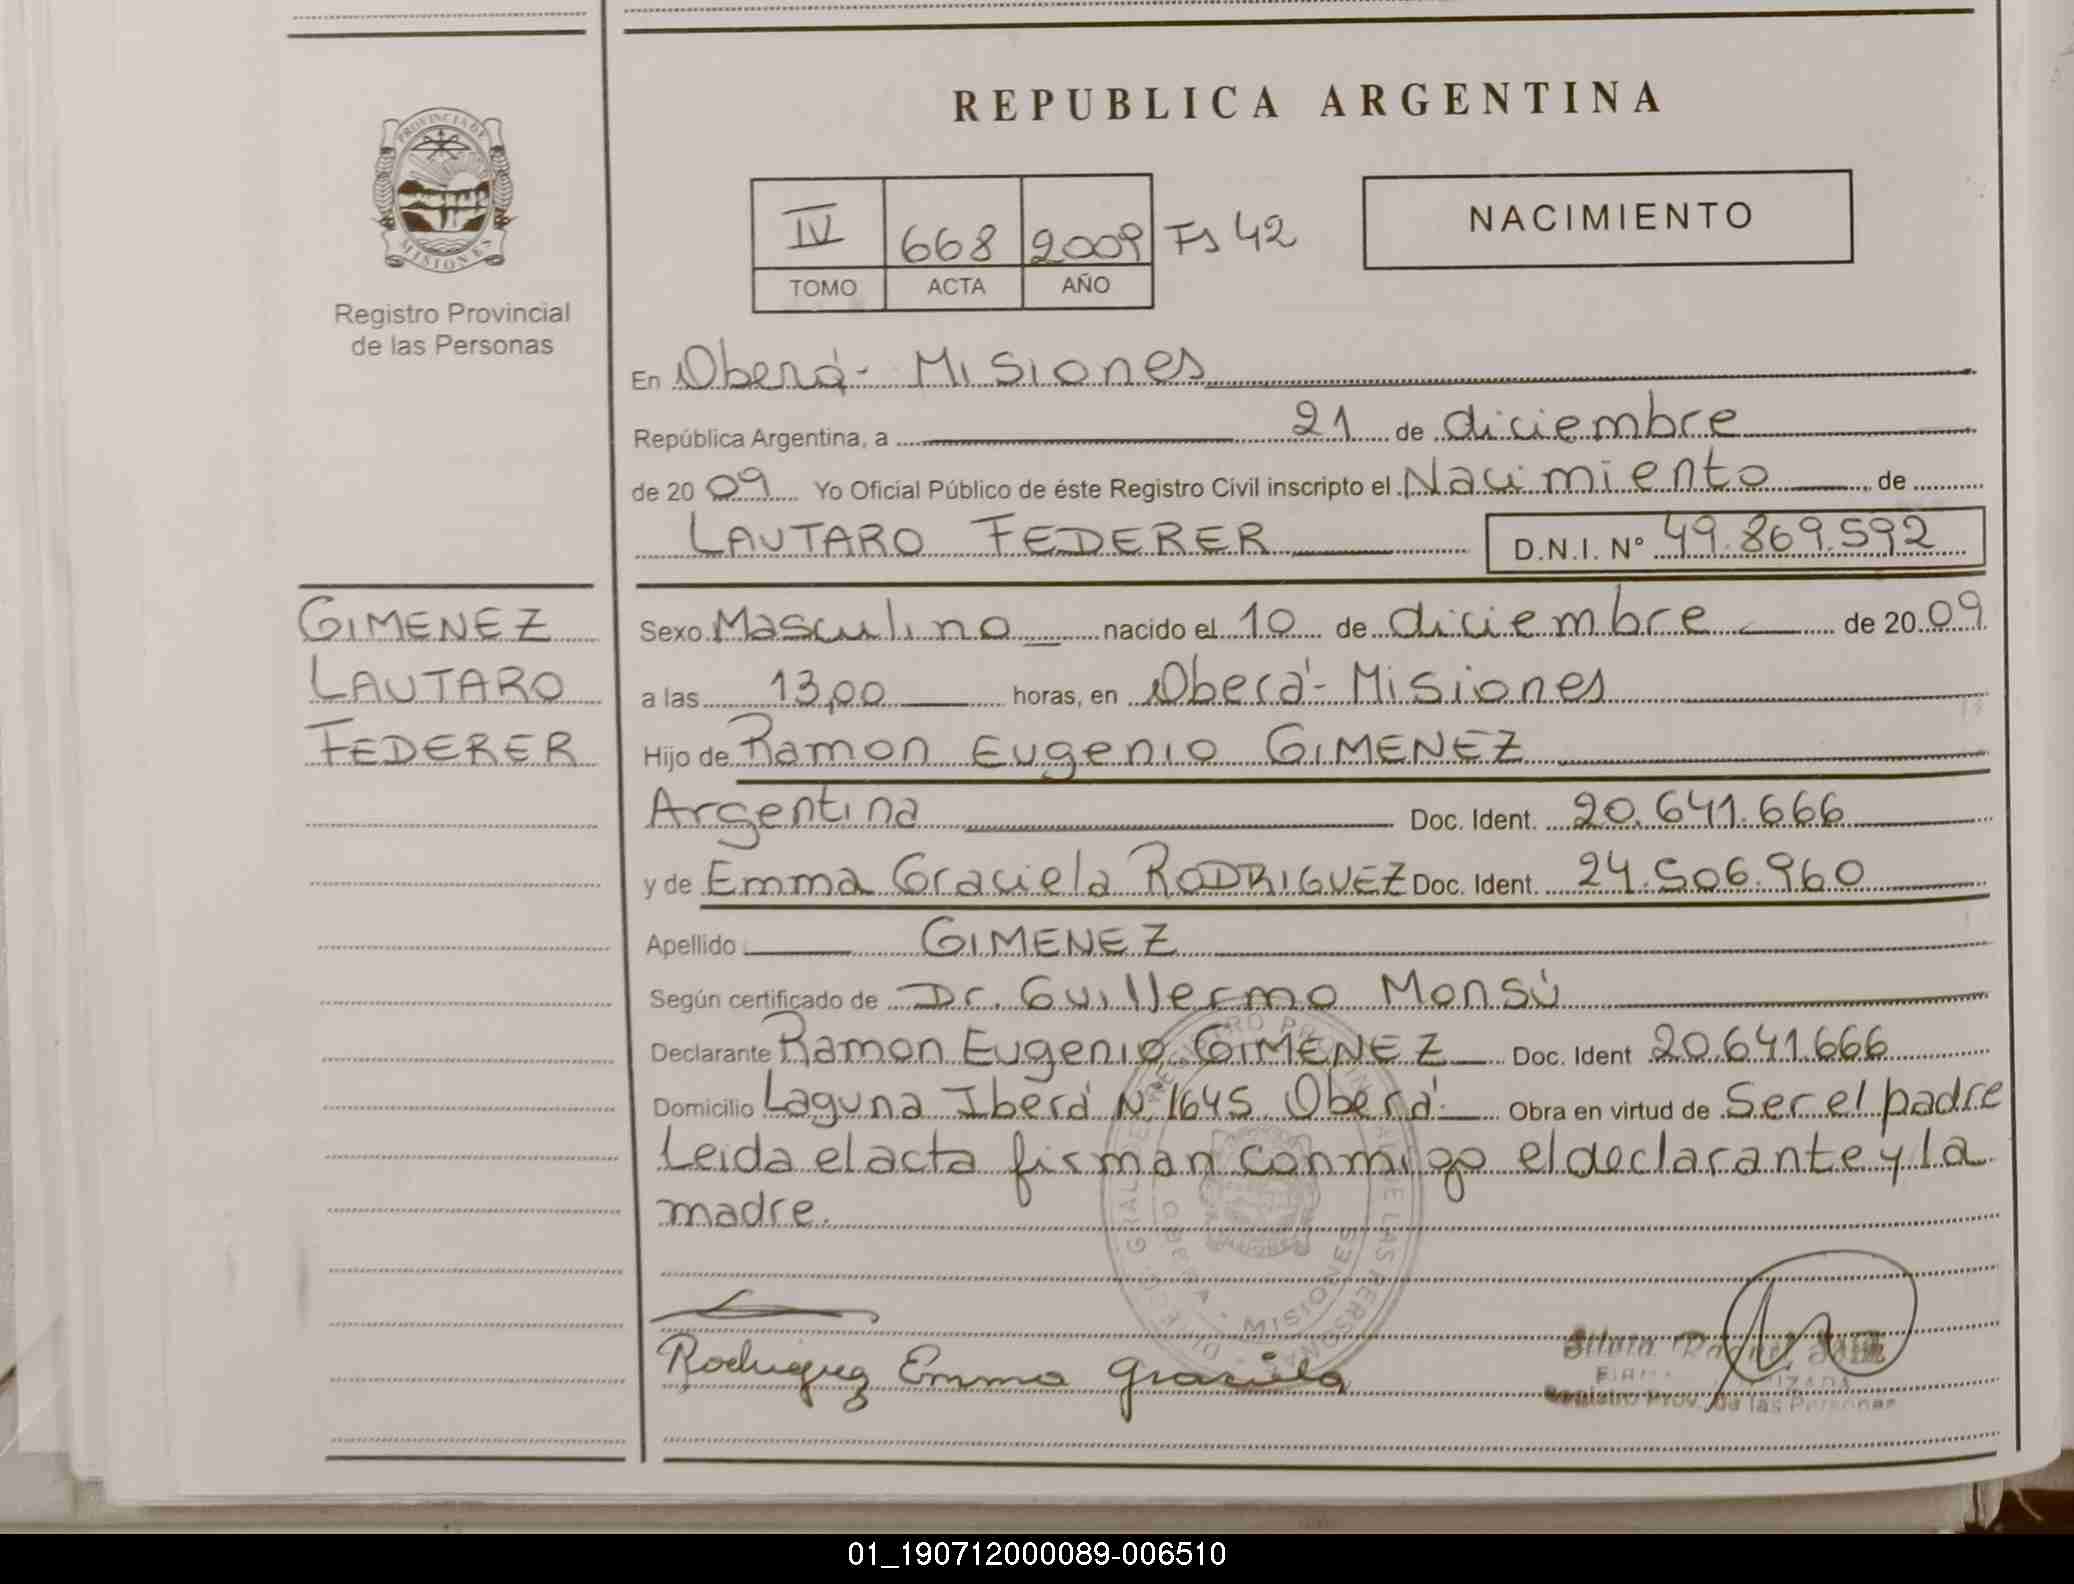 REPUBLICA ARGENTINA
PROVINCIA DE
MISIONES
Registro Provincial
de las Personas
IV 668 2009 Fs 42
TOMO ACTA AÑO
NACIMIENTO
En Oberá - Misiones
República Argentina, a 21 de diciembre
de 20 09 Yo Oficial Público de éste Registro Civil inscripto el Nacimiento de
LAUTARO FEDERER D.N.I. Nº 49.869.592
GIMENEZ
LAUTARO
FEDERER
Sexo Masculino nacido el 10 de diciembre de 20 09
a las 13,00 horas, en Oberá - Misiones
Hijo de Ramon Eugenio GIMENEZ
Argentina Doc. Ident. 20.641.666
y de Emma Graciela RODRIGUEZ Doc. Ident. 24.506.960
Apellido GIMENEZ
Según certificado de Dr. Guillermo Monsú
Declarante Ramon Eugenio GIMENEZ Doc. Ident 20.641.666
Domicilio Laguna Iberá Nº 1645 Oberá Obra en virtud de Ser el padre
Leida el acta firman conmigo el declarante y la
madre.
MISIONES
Rodriguez Emma Graciela
Registro Prov. de las Personas
01_190712000089-006510